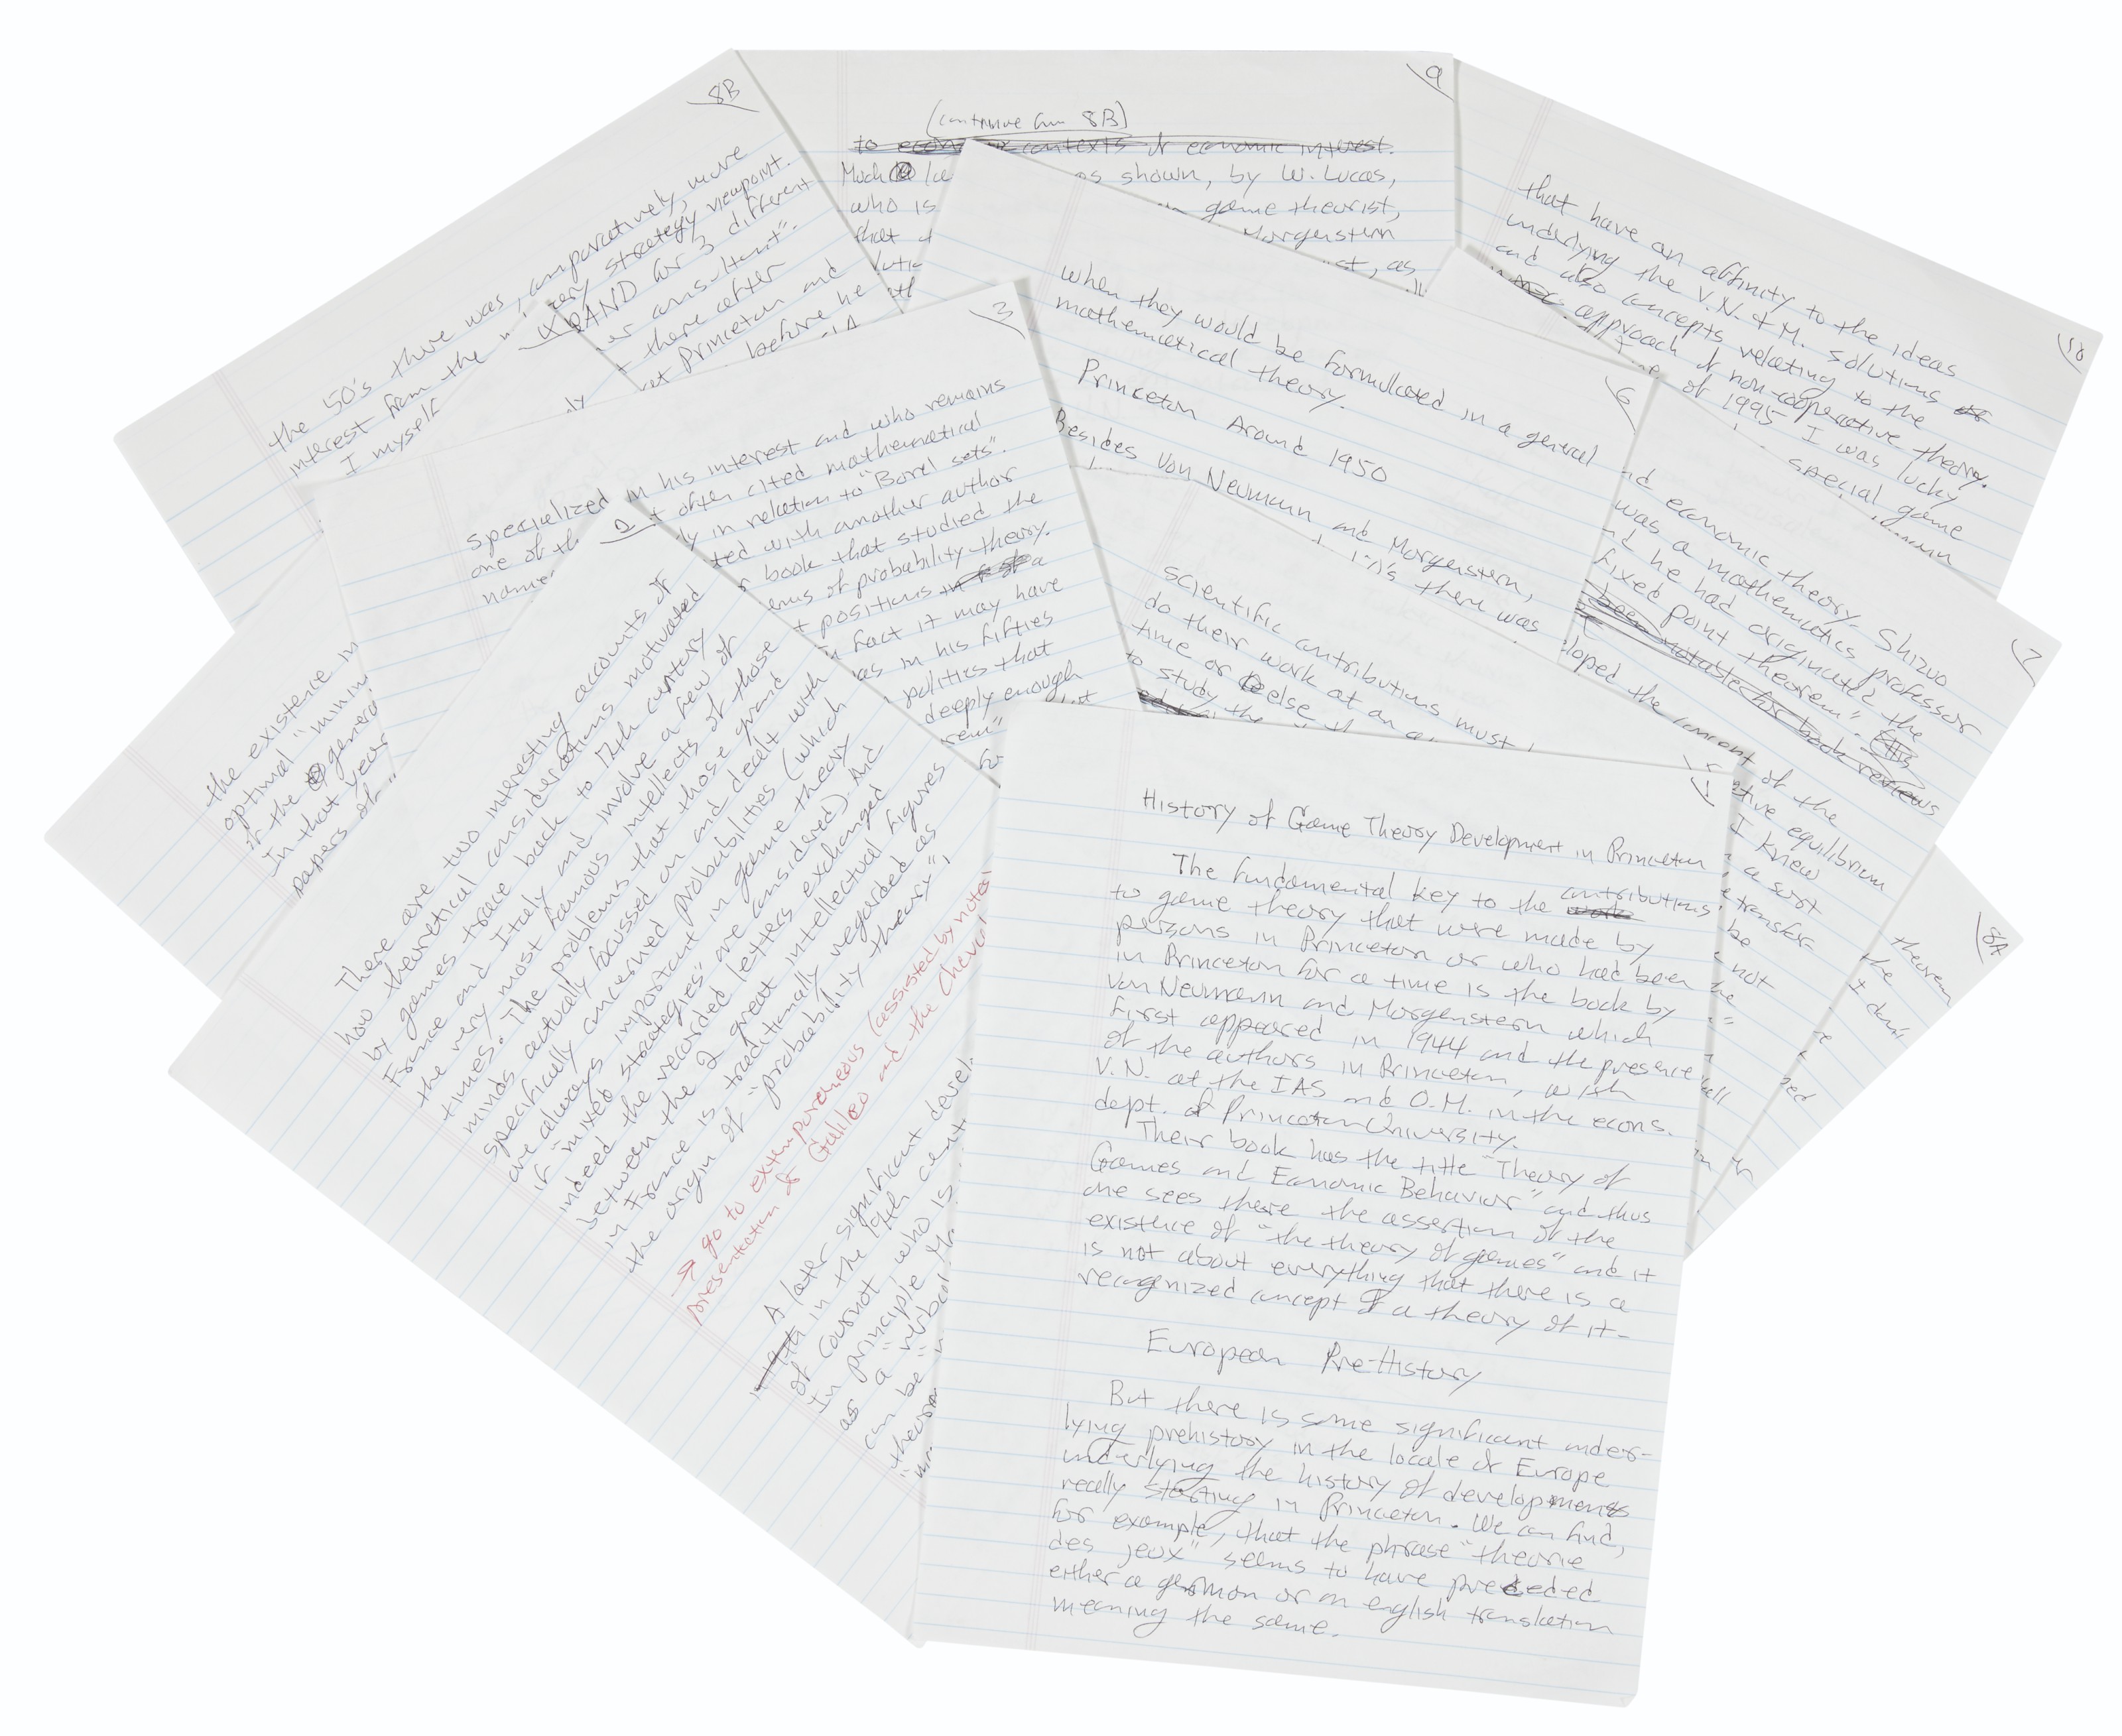 1
History of Game Theory Development in Princeton
The fundamental key to the contributions
to game theory that were made by
persons in Princeton or who had been
in Princeton for a time is the book by
Von Neumann and Morgenstern which
first appeared in 1944 and the presence
of the authors in Princeton, with
V.N. at the IAS and O.M. in the econs.
dept. of Princeton University.
Their book has the title "Theory of
Games and Economic Behavior" and thus
one sees there the assertion of the
existence of "the theory of games" and it
is not about everything that there is a
recognized concept of a theory of it-
European Pre-History
But there is some significant under-
lying prehistory in the locale of Europe
underlying the history of developments
really starting in Princeton. We can find,
for example, that the phrase "theorie
des jeux" seems to have preceded
either a german or an english translation
meaning the same.
2
There are two interesting accounts of
how theoretical considerations motivated
by games trace back to 17th century
France and Italy and involve a few of
the very most famous intellects of those
times. The problems that those grand
minds actually focussed on and dealt with
specifically concerned probabilities (which
are always important in game theory
if "mixed strategies" are considered). And
indeed the recorded letters exchanged
between the 2 great intellectual figures
in France is traditionally regarded as
the origin of "probability theory",
→ go to extemporaneous (assisted by notes)
presentation of Galileo and the Cheval
A later significant devel
in the 19th cent
of Cournot who is
In principle
as a "verbal
can be
"theorem
3
in his interest and who remains
often cited mathematical
ly in relation to "Borel sets".
ted with another author
book that studied the
of probability theory.
positions a
in fact it may have
was in his fifties
politics that
deeply enough
4
specialized
one of th
name
the existence in
optimal "minim
of the genera
In that year
papers of
scientific contributions must
do their work at an
time or else
to study the
6
when they would be formulated in a general
mathematical theory.
Princeton Around 1950
Besides Von Neumann and Morgenstern,
there was
7
nd economic theory. Shizuo
was a mathematics professor
nd he had originated the
fixed point theorem".
been notated for book reviews
loped the concept of the
ative equilibrium
I knew
a sort
transfer-
be
not
8A
theorem
the
8B
the 50's there was, comparatively, more
interest from the military strategy viewpoint.
I myself
RAND for 3 different
consultant".
there after
at Princeton and
before he
9
(continue from 8B)
to economic contexts of economic interest.
Much la
as shown, by W. Lucas,
who is
game theorist,
that
Morgenstern
as
10
that have an affinity to the ideas
underlying the V.N. & M. solutions
and also concepts relating to the
approach of non-cooperative theory.
of 1995 I was lucky
special game